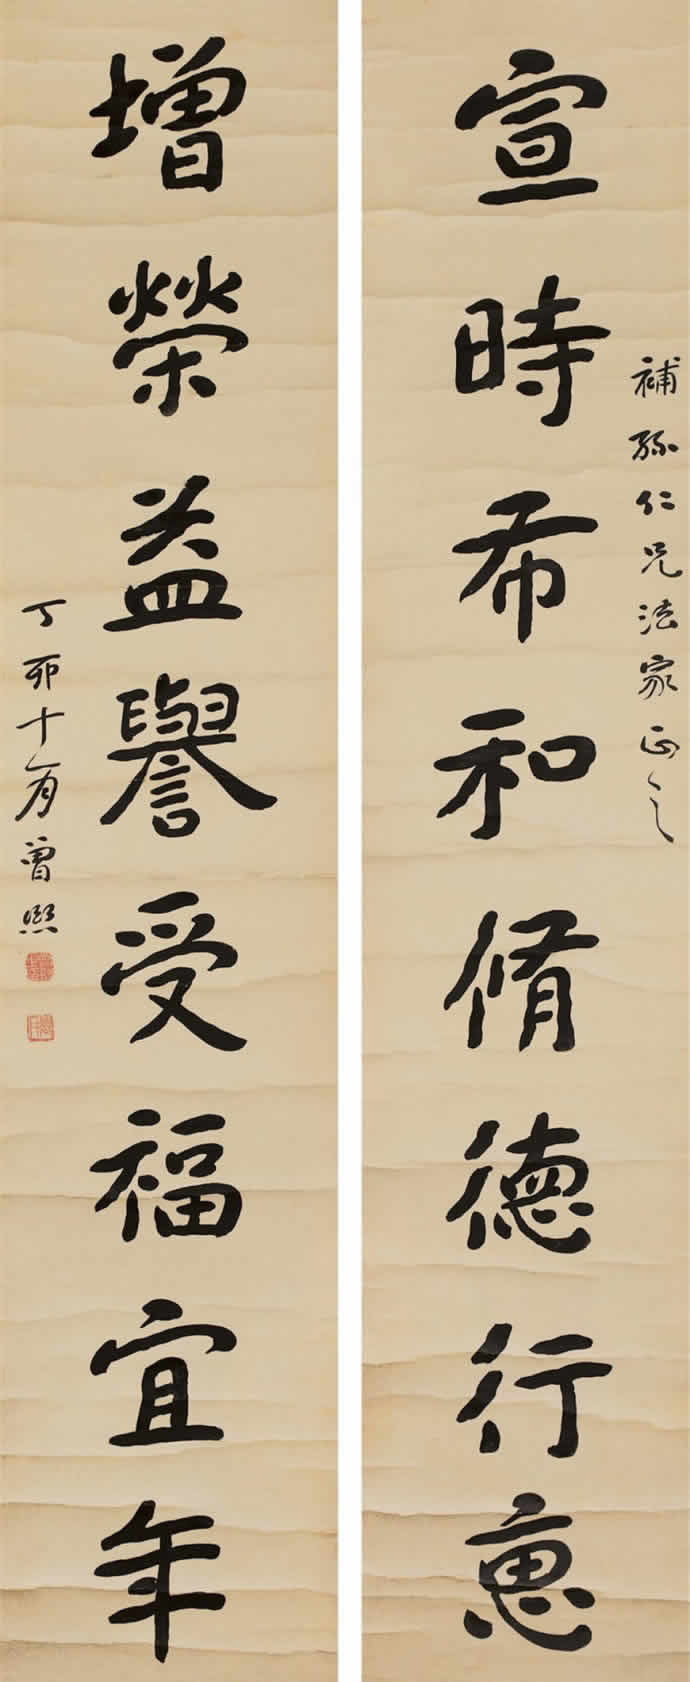 補孫仁兄法家正之
宣時希和脩德行惠
增榮益譽受福宜年
丁卯十一月曾熙